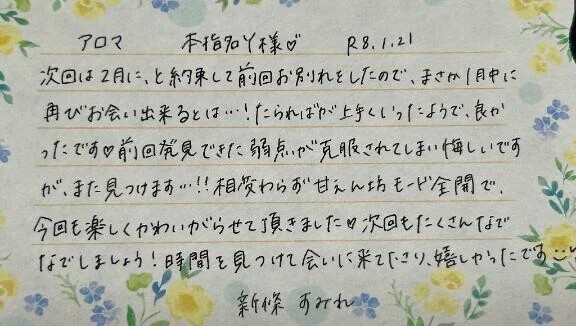 アロマ 本指名Y様♡ R8.1.21
次回は2月に、と約束して前回お別れをしたので、まさか1月中に
再びお会い出来るとは…!たらればが上手くいったようで、良か
ったです♡前回発見できた弱点が克服されてしまい悔しいです
が、また見つけます…!!相変わらず甘えん坊モード全開で、
今回も楽しくかわいがらせて頂きました♡次回もたくさんなで
なでしましょう!時間を見つけて会いに来て下さり、嬉しかったです
新條 すみれ